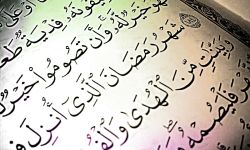 وَعَلَى
فِدْيَةٌ طَعَا
خَيْرٌ لَّهُ وَأَن تَصُومُوا خَيْرٌ
شَهْرُ رَمَضَانَ الَّذِي أُنزِلَ فِ
وَبَيِّنَٰتٍ مِّنَ الْهُدَىٰ وَالْفُ
فَلْيَصُمْهُ